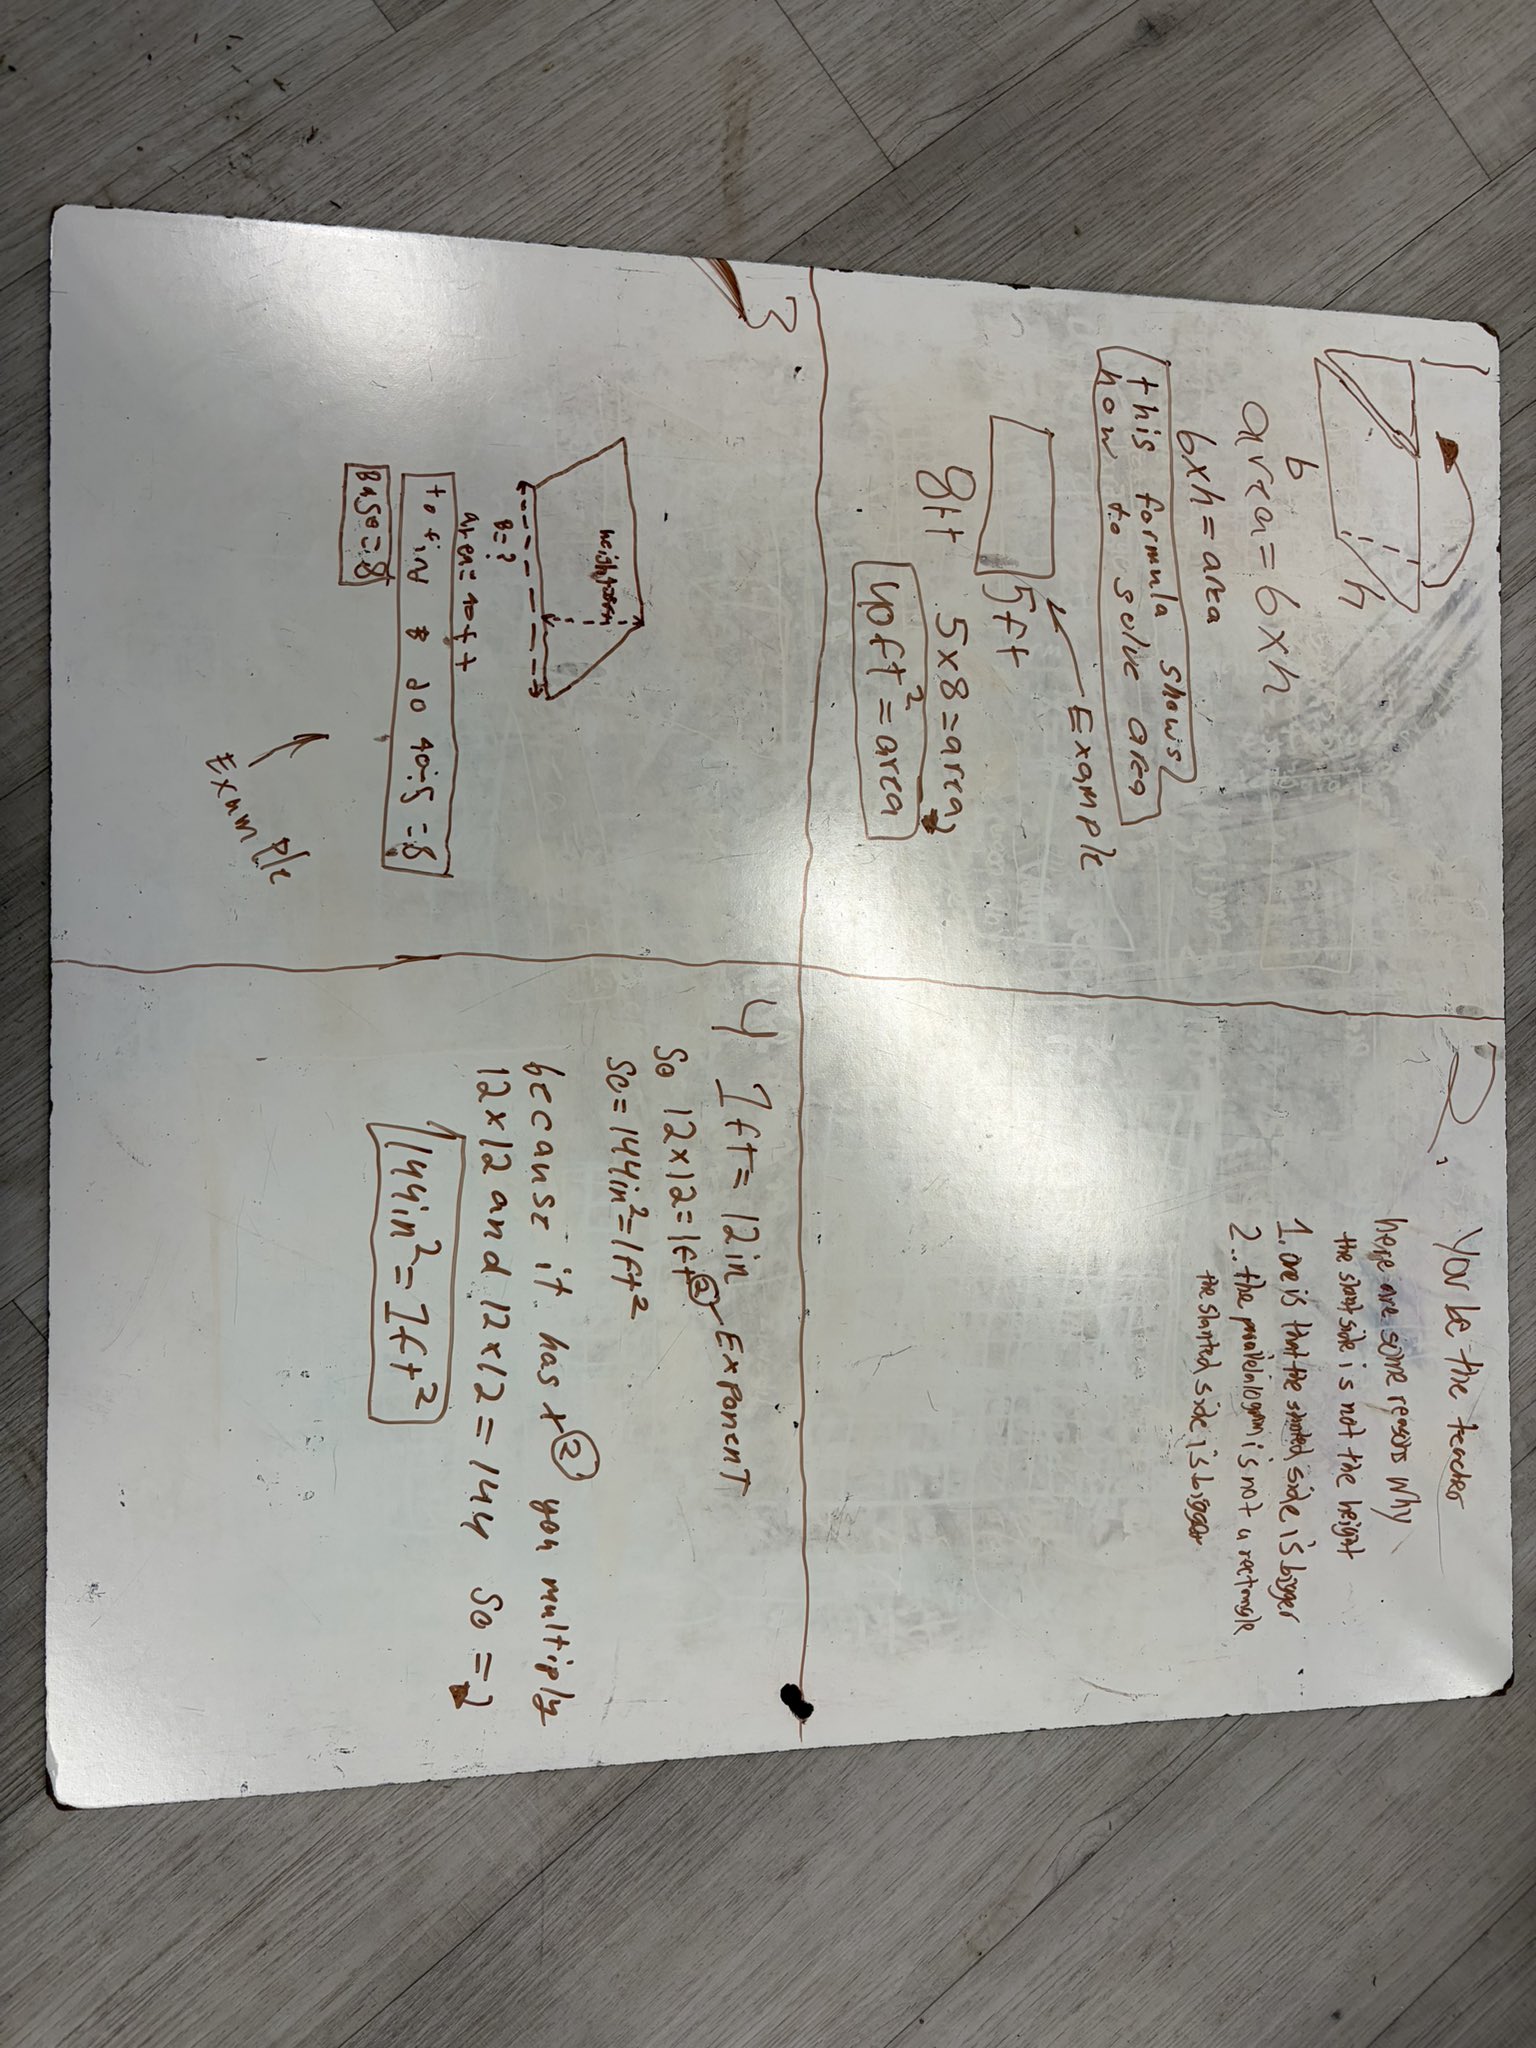 1
h
b
area = b x h
b x h = area
this formula shows
how to solve area
Example
5ft
8ft
5 x 8 = area
40ft² = area
2.
You be the teacher
here are some reasons why
the slant side is not the height
1. one is that the slanted side is bigger
2.. the parallelogram is not a rectangle
the slanted side is bigger
3
B = ?
area = 40ft
to find B do 40÷5 = 8
Base = 8
Example
4
1ft = 12in
So 12x12 = 1ft② Exponent
So = 144in² = 1ft²
because it has t② you multiply
12 x 12 and 12 x 12 = 144 so =
144in² = 1ft²